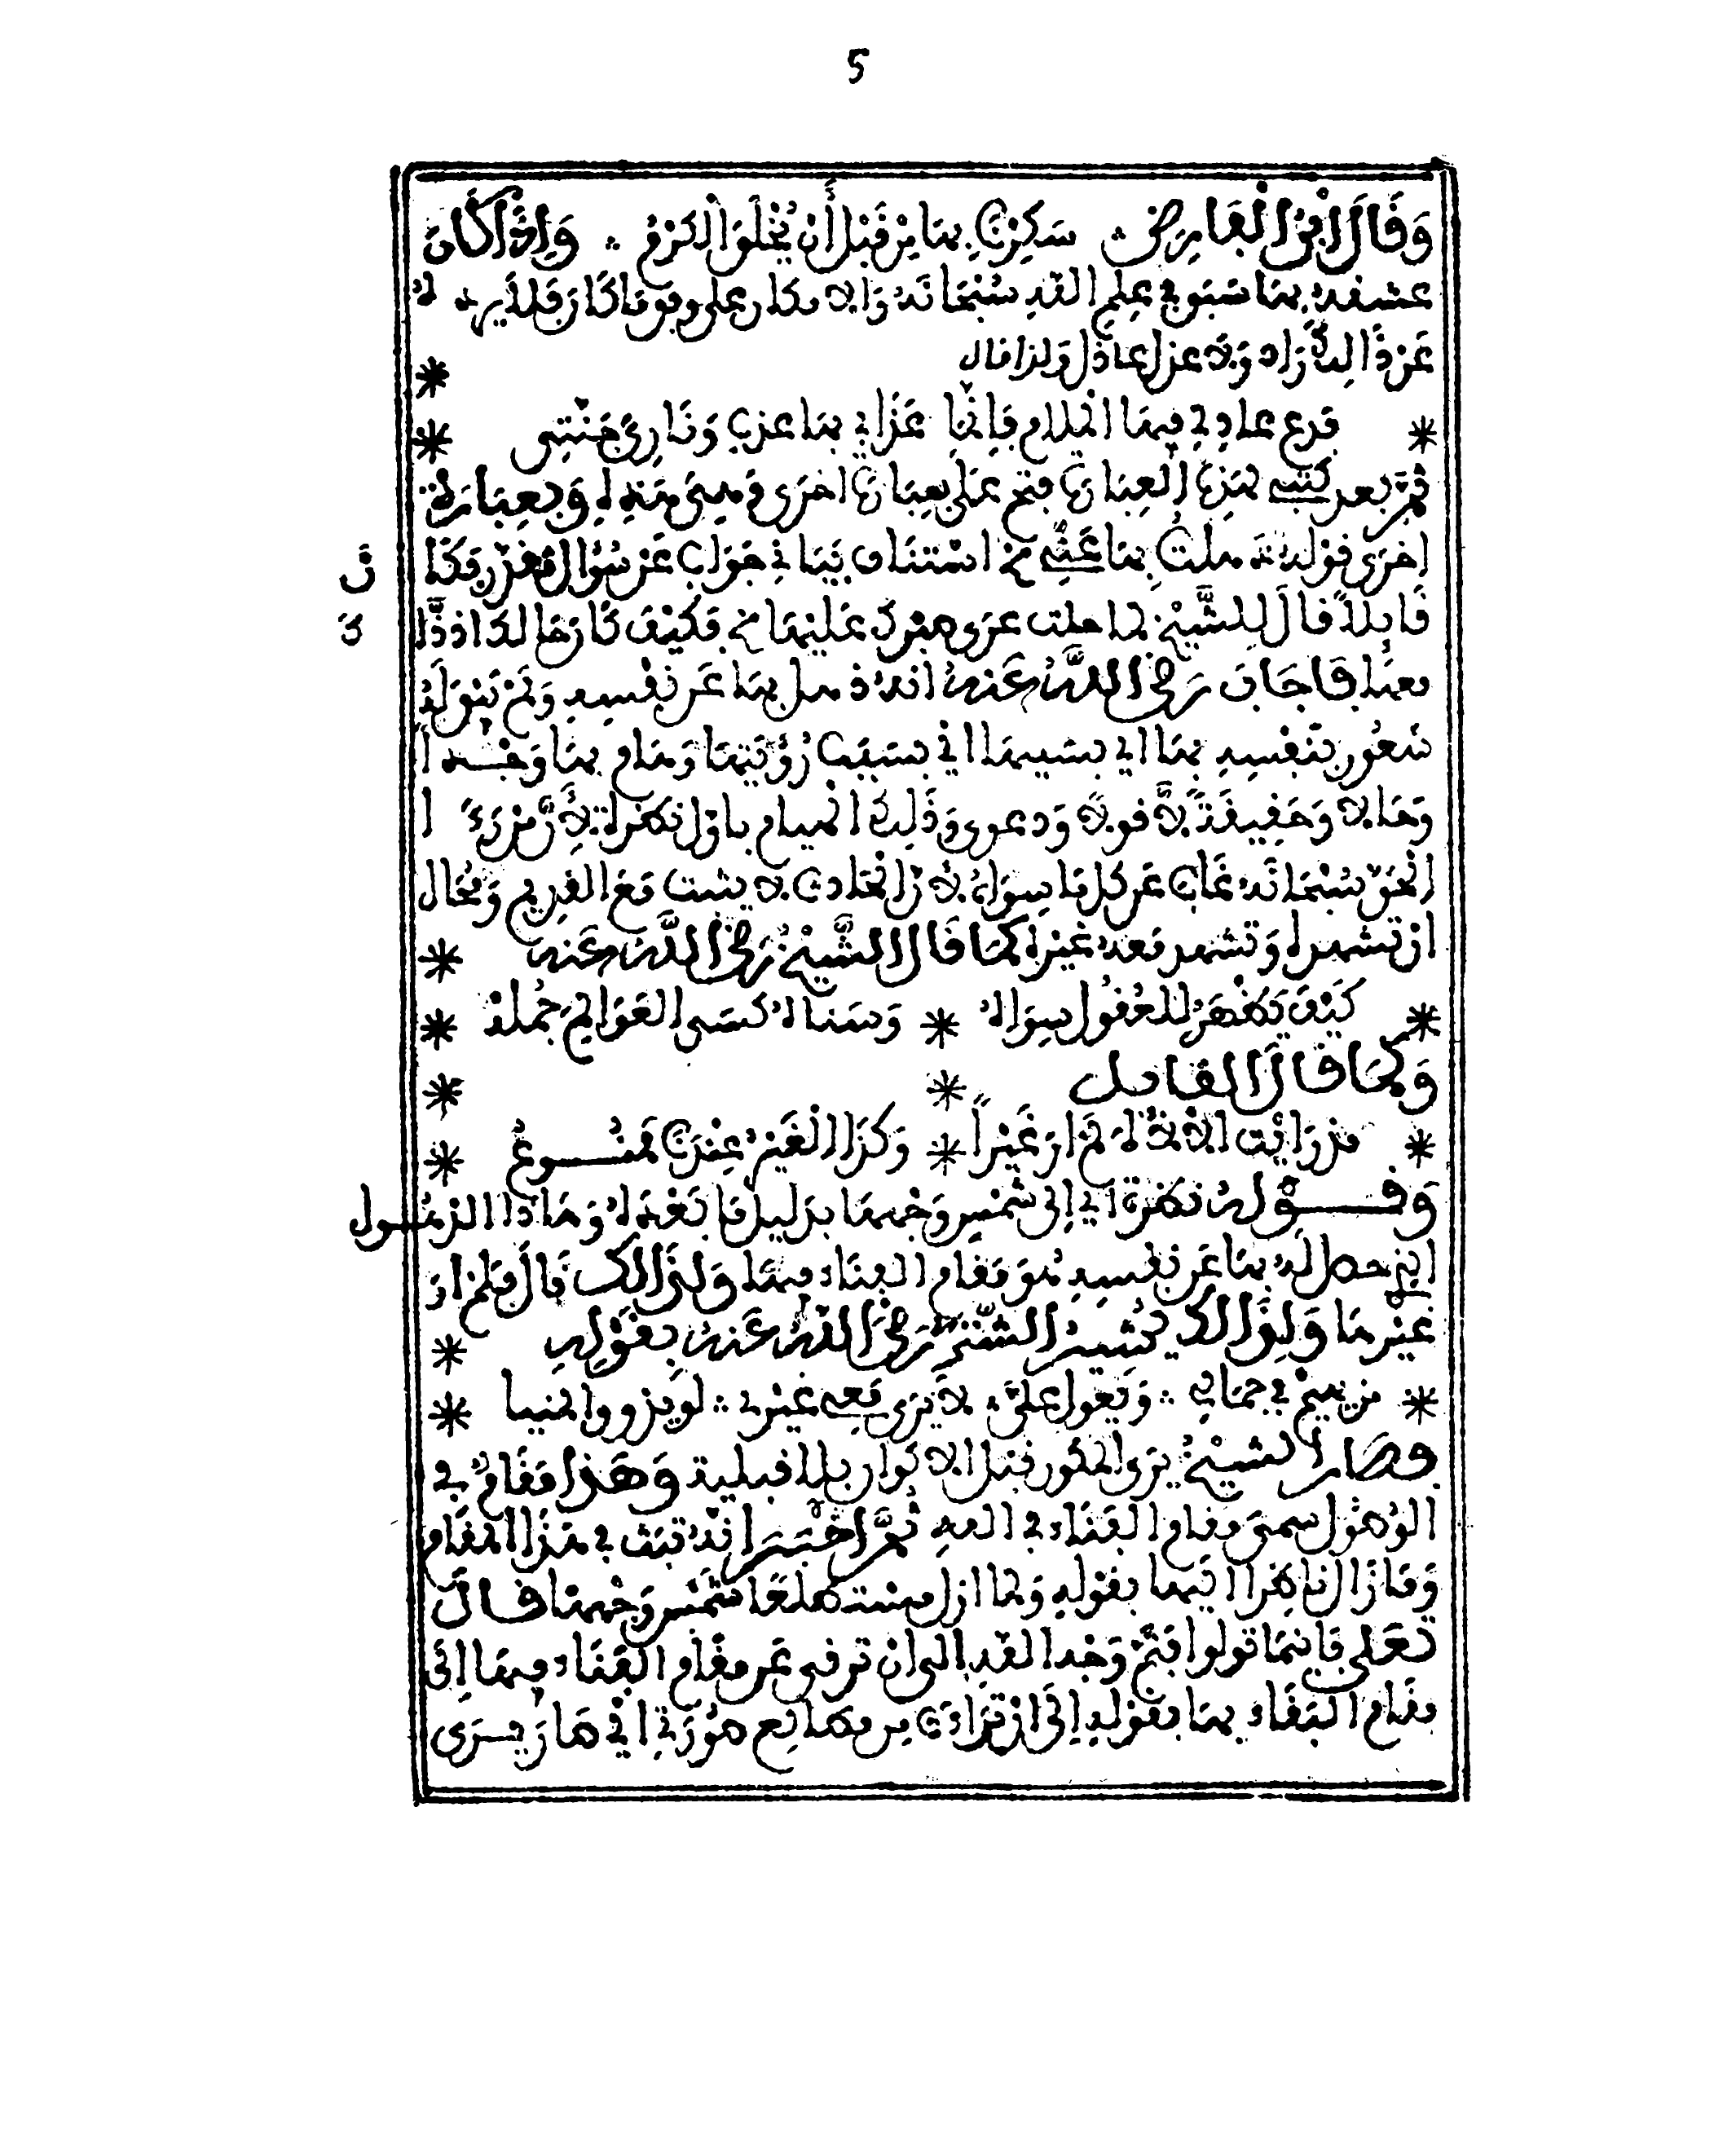 5
وَقَالَ ابْنُ الْفَارِضِ سَكِرْنَا بِهَا مِنْ قَبْلِ أَنْ يُخْلَقَ الْكَرْمُ وَإِذَا كَانَ
عشقه بها سَبَقَ في عِلْمِ اللهِ سُبْحَانَهُ وَالآن على وفق مَا كَانَ فَلا له
عَنْ ذَالِكَ رَاد وَلا عذل عاذل وَلذا قال
فدع عاذلي فيها الملام فَإِنَّمَا عَذَابي بها عذب وَنَارِي جَنَّتِي
ثُمَّ بعد كتبه هذه الْعِبَارَة فتح عَلَيَّ بعِبَارَة اخرى وَهِيَ هَذِهِ وَبِعِبَارَة
اخرى قوله ذهلتُ بِهَا عَنِّي الخ اسْتئناف بَيَانِي جَوَاب عَنْ سُؤال مُقَدَّر فَكَأَنَّ
قَائِلاً قَالَ لِلشَّيْخِ لما عدى صبرك عَلَيْهَا الخ فَكَيْفَ كَانَ حَالك اذ ذَّاكَ
معها فَأَجَابَ رَضِيَ اللهُ عَنْهُ انه ذهل بها عَن نفْسِهِ وَلَمْ يَبْقَ لَهُ
شُعُور بنَفْسِهِ بها اي بسببها اي بسبب رُؤْيَتِهَا وَهام بها وَجْدا
وَحَالا وَحَقِيقَةً لاَ قولا وَدعوى وَذَلِكَ الهيام باول نظرة لأَنَّ مَنْ رَأى
الحَقّ سُبْحَانَه غَابَ عَن كل مَا سِوَاهُ لأنّ الحَادث لا يثبت مَعَ القَدِيم وَمُحَال
ان تشهده وَتشهد مَعه غَيْره كَمَا قَالَ الشَّيْخُ رَضِيَ اللهُ عَنْهُ
كَيْفَ يَظْهَرْ لِلعُقُول سِوَاهُ وَسَنَاهُ كسَى العَوَالِمَ جُمْلَهْ
وَكَمَا قَالَ القائل
مذ رَأَيْت الالاه لَمْ ارَ غَيْراً وَكَذَا الْغَيْرُ عِنْدَنَا مَمْنُوعُ
وَقَوْلُهُ نظرة أي إِلَى شَمْسِ وَجْهِهَا بدَلِيلِ مَا بَعْدَهُ وَهَاذَا الذهُول
الذي حصل لَهُ بِهَا عَن نفْسِهِ هُوَ مَقَام الفَنَاء فيها وَلِذَالِكَ قَالَ فَلم ارَ
غَيْرهَا وَلِذَالِكَ يُشِيرُ الشُّشْتَرِي رَضِيَ اللهُ عَنْهُ بِقَوْلِهِ
مَن يهِيمْ فِي جَمَالِي وَيَقُولْ عَلَيّ لا يَرَى مَعِي غَيْرِي لَوْ يَذُوق الحُمَيَّا
فصَارَ الشيْخُ يَرَى المكون قَبْلَ الاكْوان بلا قبلية وَهَذَا مَقَامٌ فِي
الوُصُول سمى مقام الفَنَاء في الله ثُمَّ أَخْبَرَ انّه ثبَت في هَذَا المقَام
وَمَا زَالَ نَاظِرا اليها بقَوْلِهِ وَلَمَا ازل مستطلعا شَمْس وَجْهِهَا قَالَ
تَعَلَى فَأينمَا تولوا فَثَمَّ وَجْه الله الى ان ترقى عَن مقَام الفَنَاء فيهَا إِلَى
مقَام البَقَاء بهَا بقَوْلِهِ إِلَى أَنْ تَرَاءَتْ مِن مطَالِعِ صُورَتِي اي صَارَ يَرَى